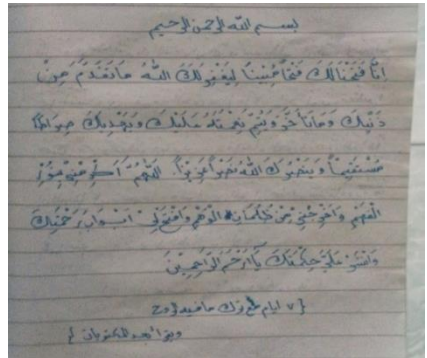 بسم الله الرحمن الرحيم
إِنَّا فَتَحْنَا لَكَ فَتْحًا مُبِينًا لِيَغْفِرَ لَكَ اللهُ مَا تَقَدَّمَ مِنْ
ذَنْبِكَ وَمَا تَأَخَّرَ وَيُتِمَّ نِعْمَتَهُ عَلَيْكَ وَيَهْدِيَكَ صِرَاطًا
مُسْتَقِيمًا وَيَنْصُرَكَ اللهُ نَصْرًا عَزِيزًا. اللَّهُمَّ أَكْرِمْنِي بِنُورِ
الْفَهْمِ وَأَخْرِجْنِي مِنْ ظُلُمَاتِ الْوَهْمِ وَافْتَحْ لِي أَبْوَابَ رَحْمَتِكَ
وَانْشُرْ عَلَيَّ حِكْمَتَكَ يَا أَرْحَمَ الرَّاحِمِينَ
{ ٧ ايام مع ترك ما فيه روح
بعد المكتوبات }